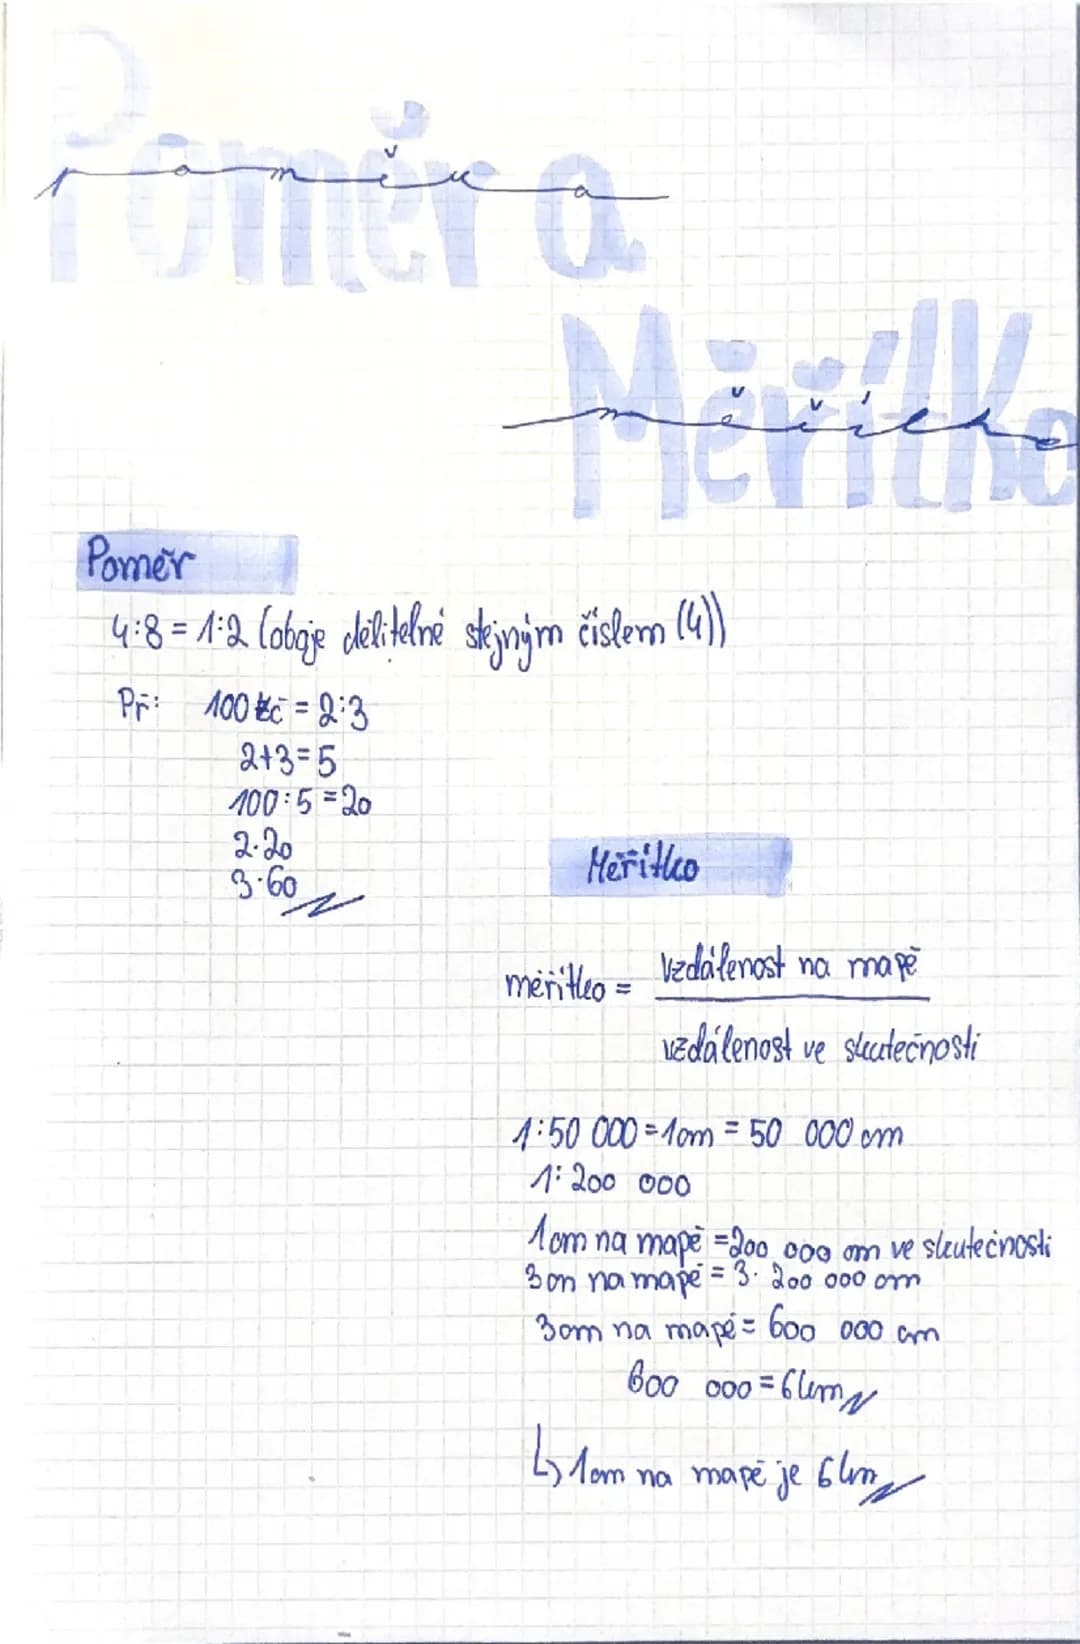 Poměr a
poměr a
Měřítko
měřítko
Poměr
4:8 = 1:2 (oboje dělitelné stejným číslem (4))
Př: 100 Kč = 2:3
2+3=5
100:5=20
2·20
3·60
Měřítko
měřítko = vzdálenost na mapě
vzdálenost ve skutečnosti
1:50 000 = 1cm = 50 000 cm
1: 200 000
1cm na mapě = 200 000 cm ve skutečnosti
3cm na mapě = 3· 200 000 cm
3cm na mapě = 600 000 cm
600 000 = 6km
↳ 1cm na mapě je 6km